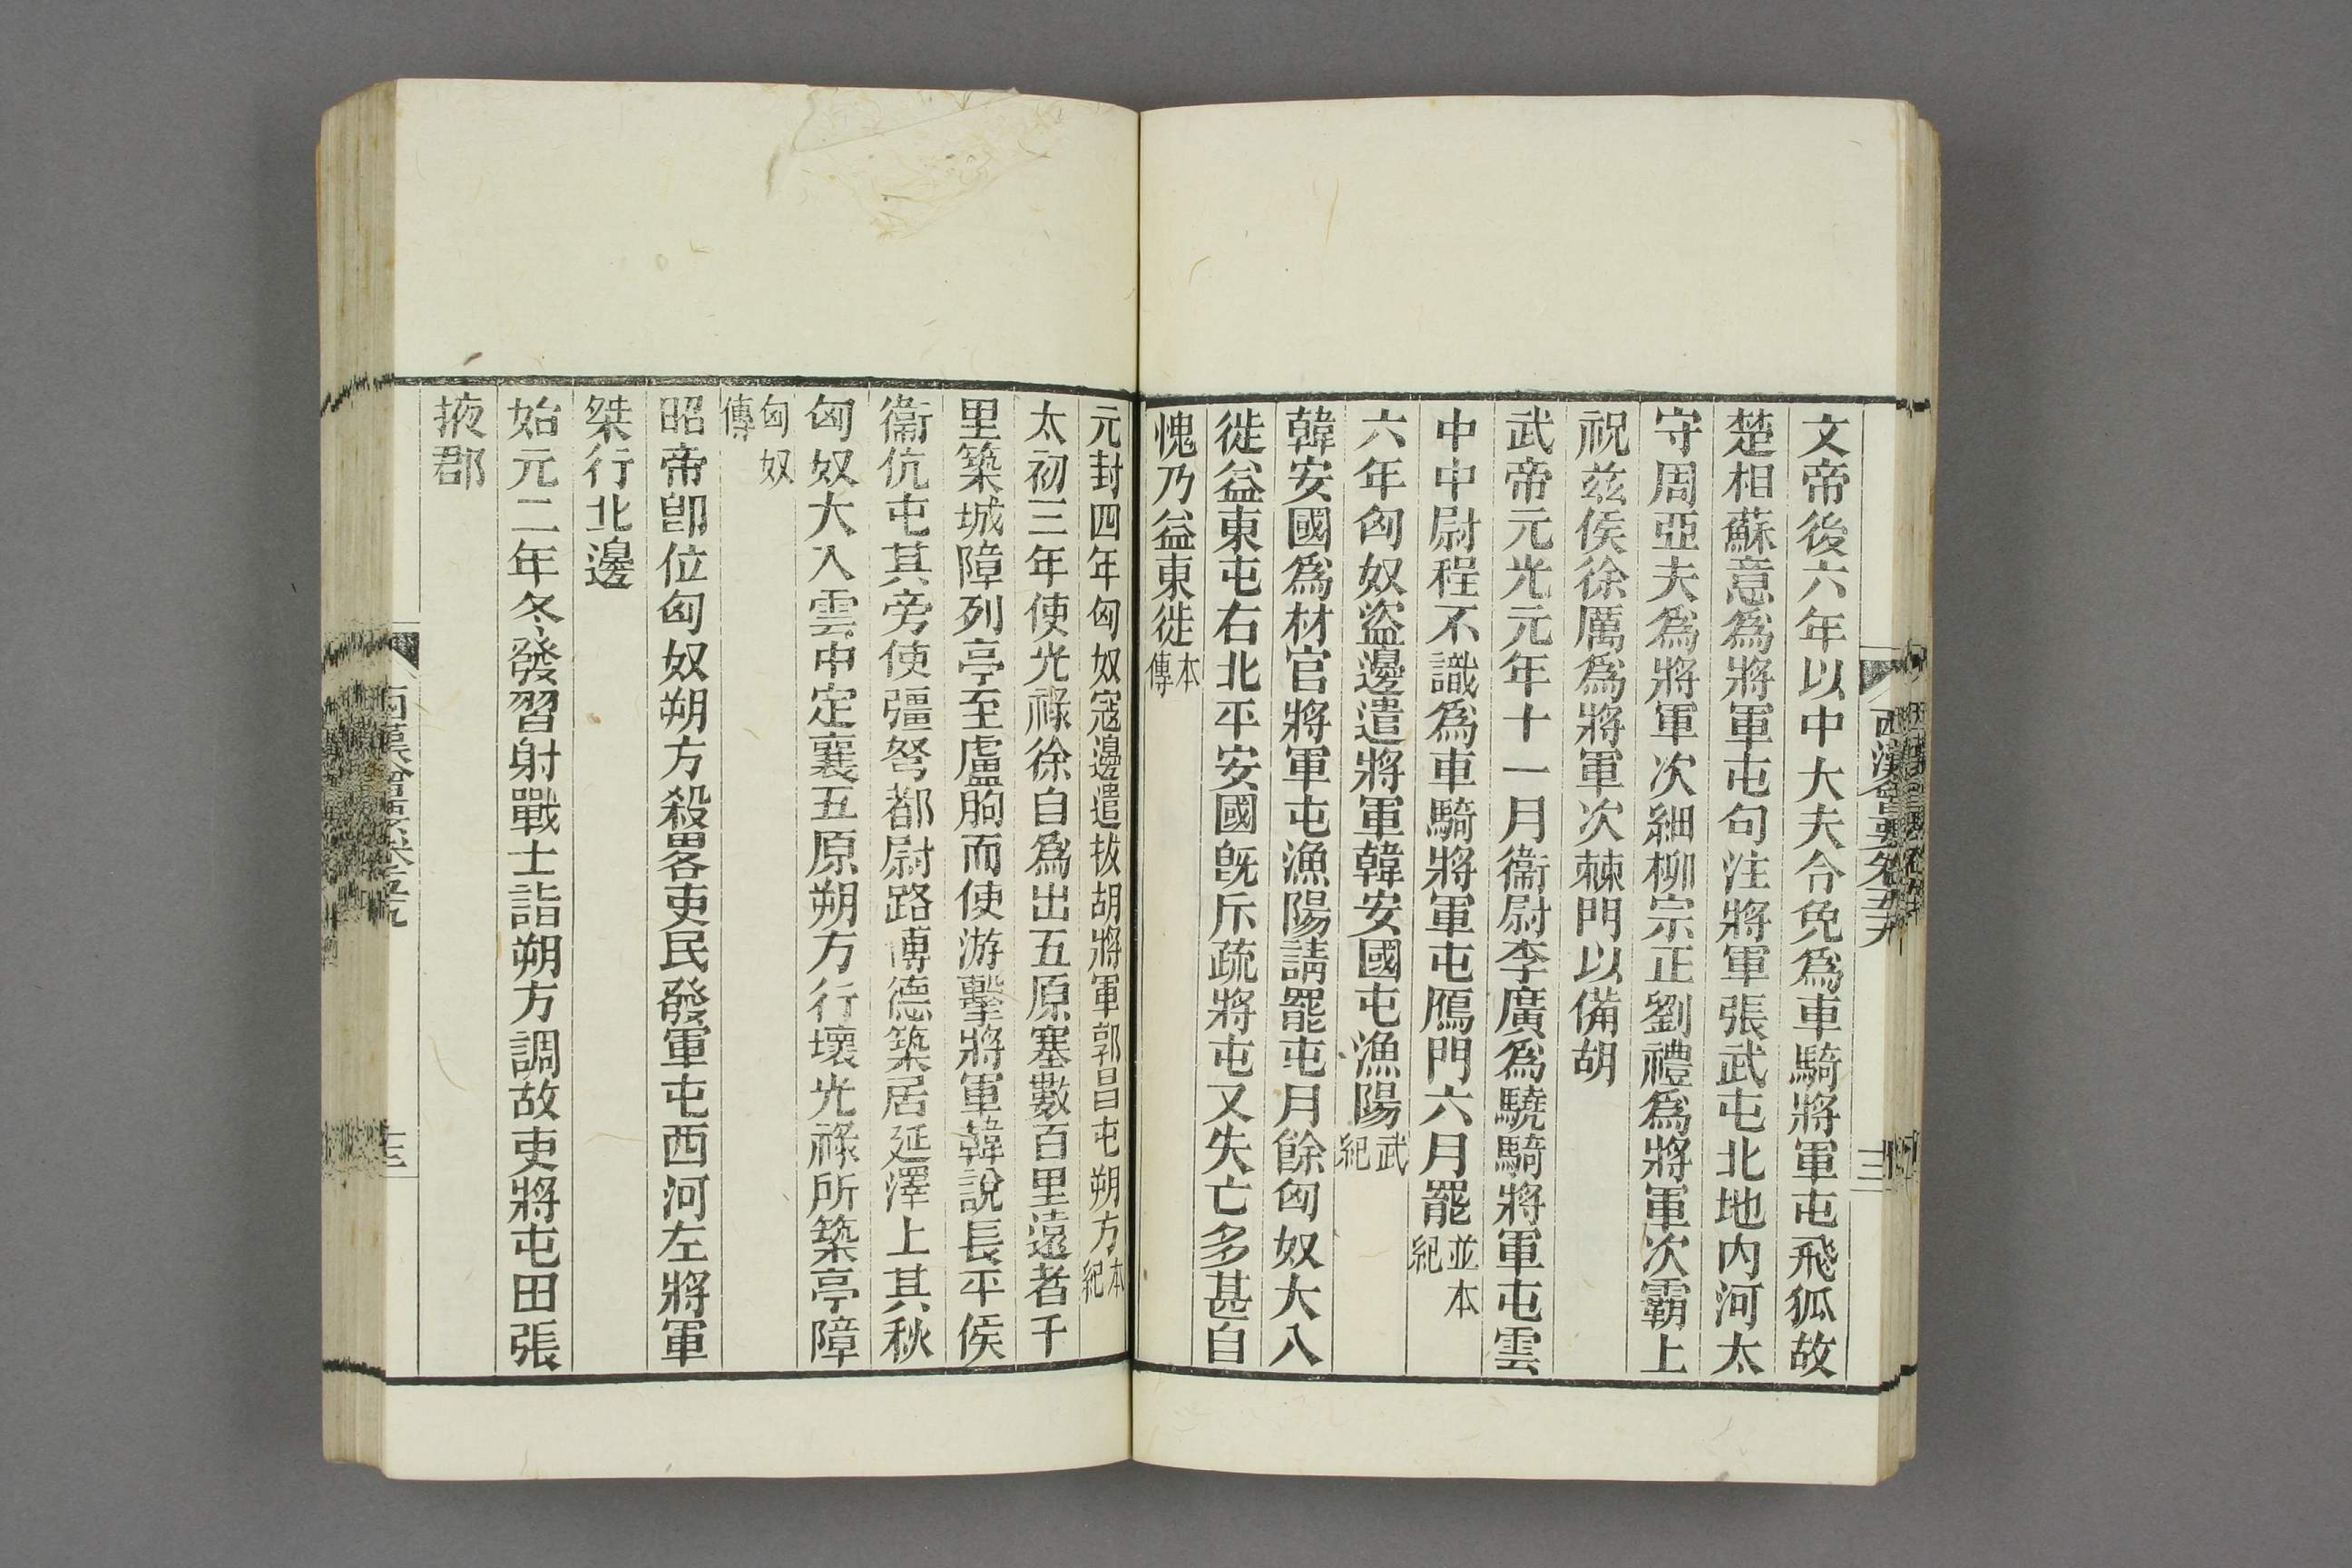 文帝後六年以中大夫令免為車騎將軍屯飛狐故
楚相蘇意為將軍屯句注將軍張武屯北地内河太
守周亞夫為將軍次細柳宗正劉禮為將軍次霸上
祝兹侯徐厲為將軍次棘門以備胡
武帝元光元年十一月衞尉李廣為驍騎將軍屯雲
中中尉程不識為車騎將軍屯鴈門六月罷並本紀
六年匈奴盜邊遣將軍韓安國屯漁陽武紀
韓安國為材官將軍屯漁陽請罷屯月餘匈奴大入
徙益東屯右北平安國旣斥疏將屯又失亡多甚自
愧乃益東徙本傳
元封四年匈奴寇邊遣拔胡將軍郭昌屯朔方本紀
太初三年使光祿徐自為出五原塞數百里遠者千
里築城障列亭至盧朐而使游擊將軍韓說長平侯
衞伉屯其旁使彊弩都尉路博德築居延澤上其秋
匈奴大入雲中定襄五原朔方行壞光祿所築亭障
匈奴傳
昭帝卽位匈奴朔方殺畧吏民發軍屯西河左將軍
桀行北邊
始元二年冬發習射戰士詣朔方調故吏將屯田張
掖郡
西漢會要卷五十九